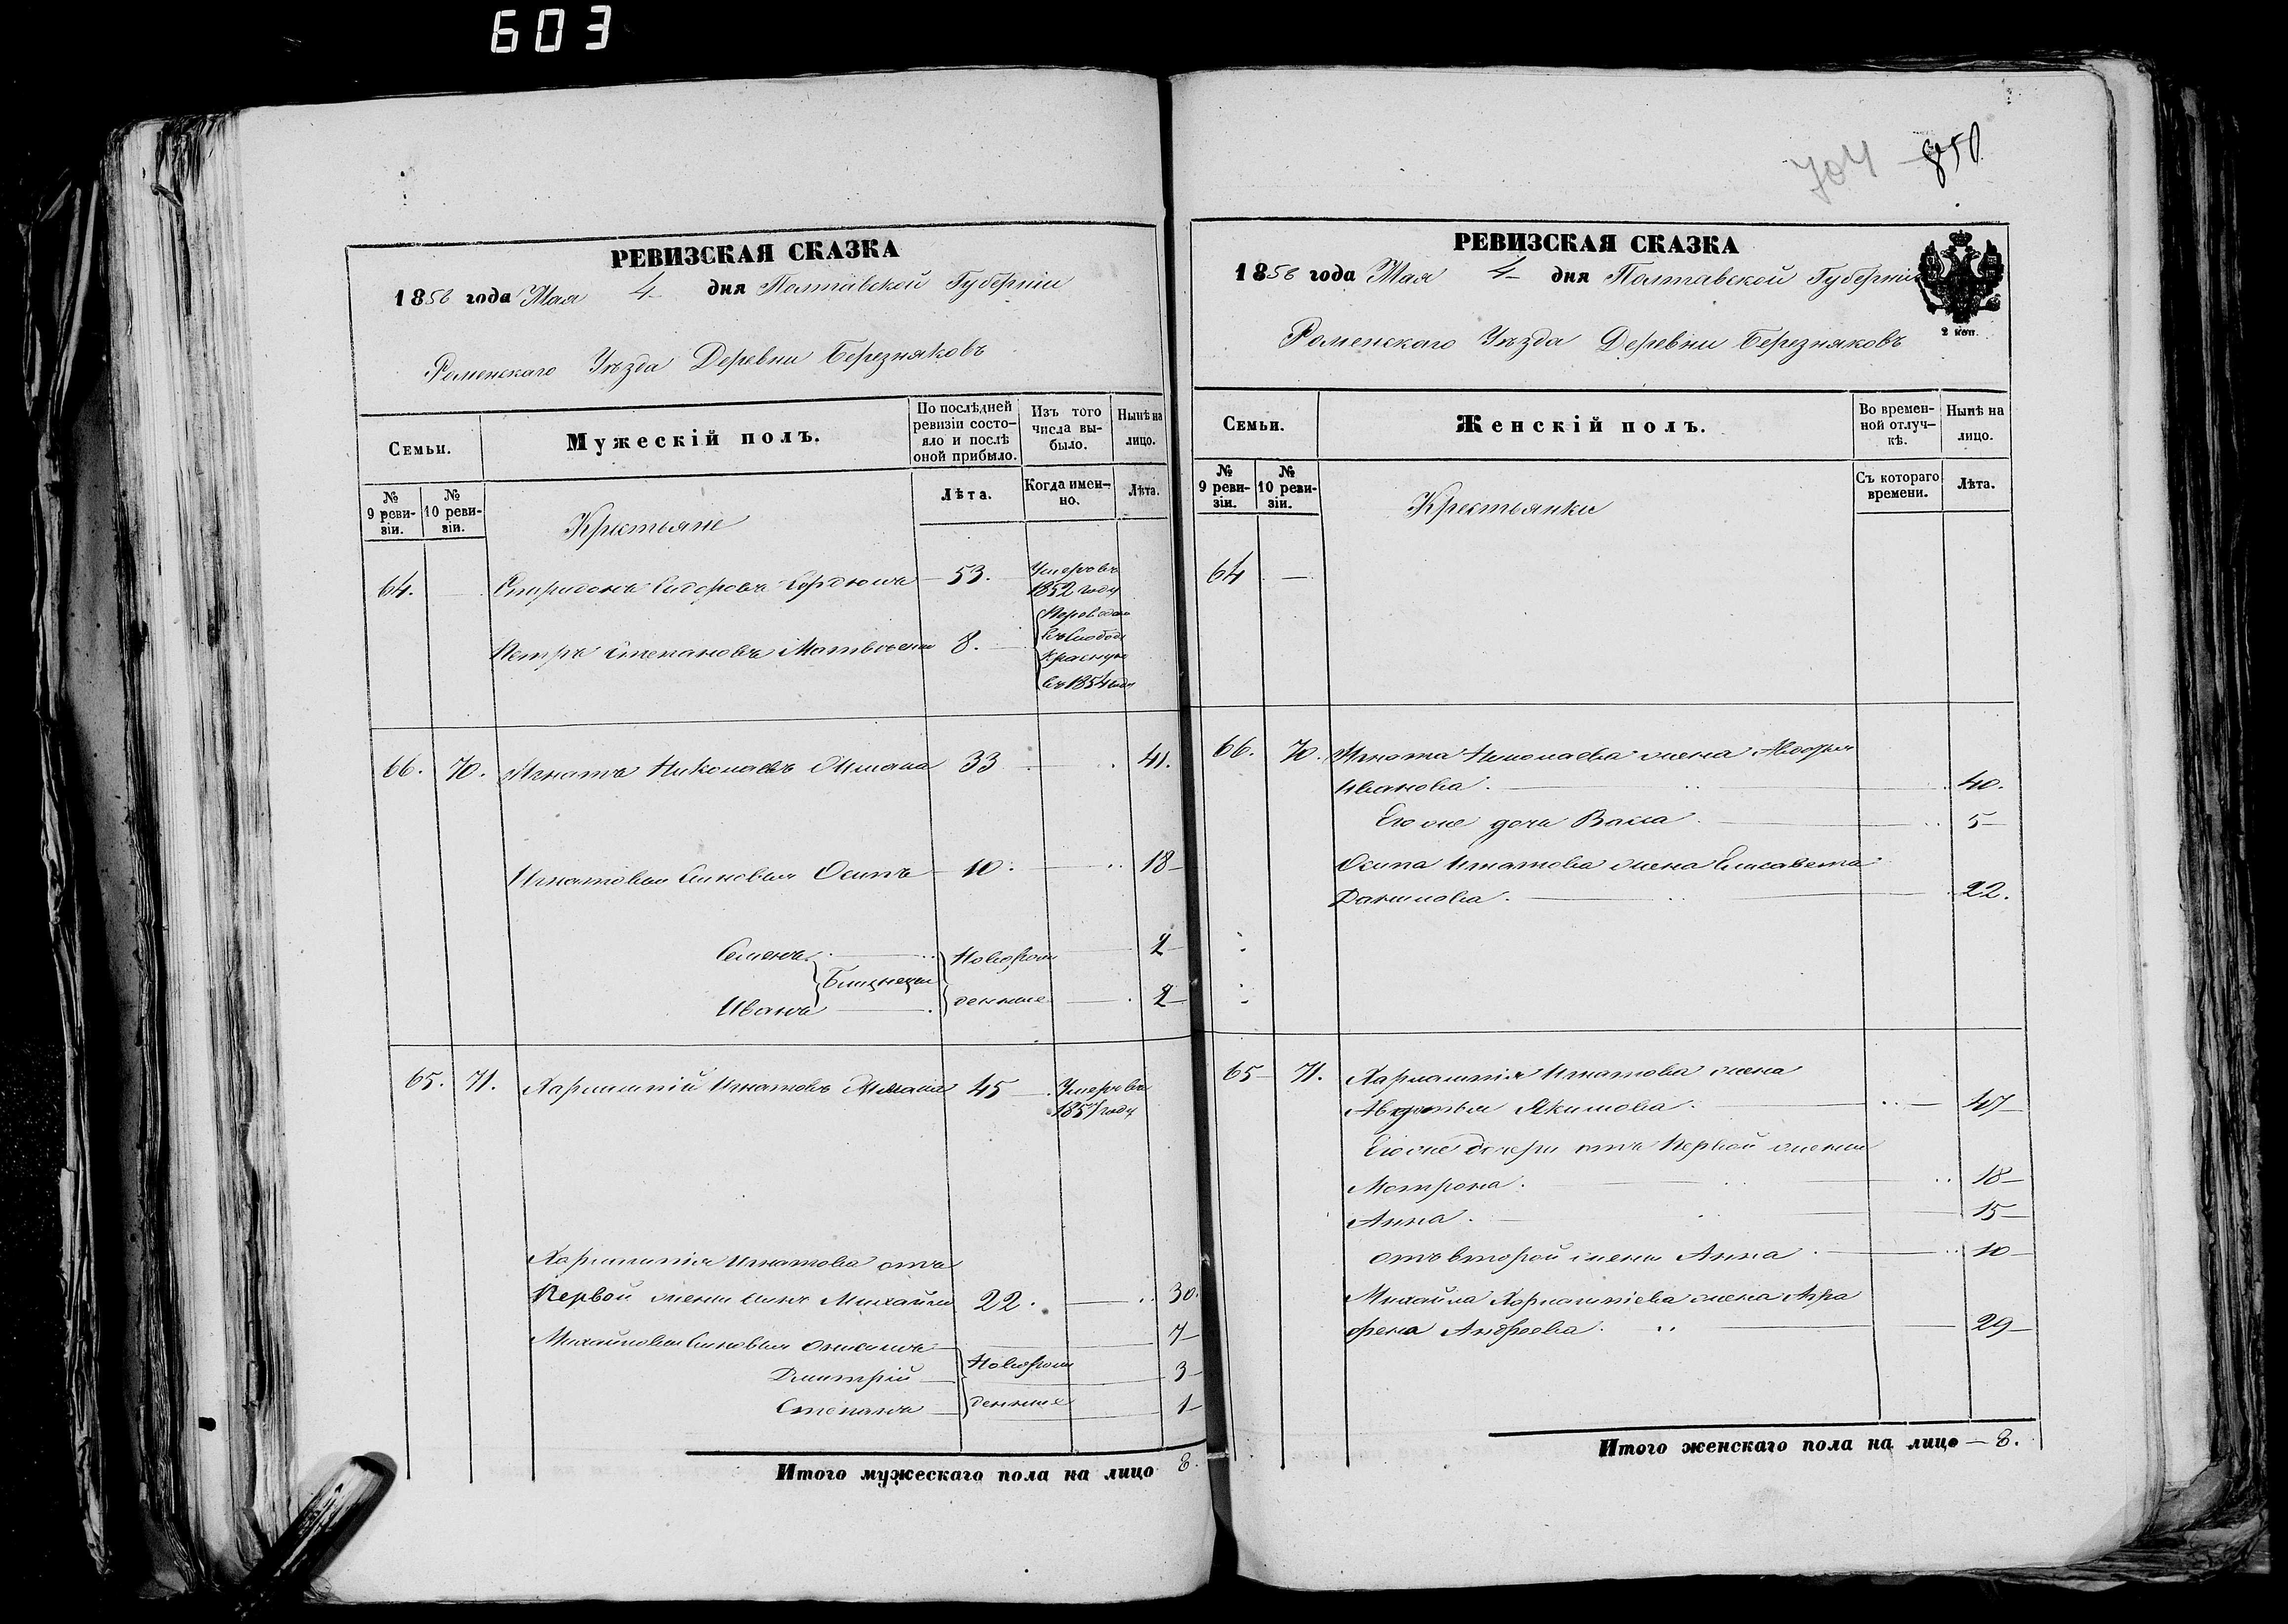 603
704
850
РЕВИЗСКАЯ СКАЗКА
1856 года Мая 4 дня Полтавской Губерніи
Роменскаго Уѣзда Деревни Березняковъ
Семьи.
Мужескій полъ.
По послѣдней ревизіи состо-
яло и послѣ
оной прибыло.
Изъ того
числа вы-
было.
Нынѣ на
лицо.
№
9 реви-
зіи.
№
10 реви-
зіи.
Лѣта.
Когда имен-
но.
Лѣта.
Крестьяне
64. Спиридонъ Сидоровъ 53. Умеръ въ
1852 году
Петръ Степановъ 8. Переведенъ
въ Слободу
Красную
въ 1854 году
66. 70. Игнатъ Николаевъ 33 41.
Игнатовы Сыновья Осипъ 10. 18
Семенъ 2
Близнецы Новорож
денные
Иванъ 2
65. 71. Харлампій Игнатовъ 45 Умеръ въ
1854 году
Харлампія Игнатова отъ
Первой жены сынъ Михайло 22. 30.
Михайловы Сыновья 7
Дмитрій Новорож 3
Степанъ денные 1
Итого мужескаго пола на лицо 8.
РЕВИЗСКАЯ СКАЗКА
1856 года Мая 4 дня Полтавской Губерніи
2 коп.
Роменскаго Уѣзда Деревни Березняковъ
Семьи.
Женскій полъ.
Во времен-
ной отлуч-
кѣ.
Нынѣ на
лицо.
№
9 реви-
зіи.
№
10 реви-
зіи.
Съ котораго
времени.
Лѣта.
Крестьянки
64 —
66. 70. Игната Николаева жена
Иванова. 40.
Его же дочь Васса. 5
Осипа Игнатова жена Елисавета
Данилова. 22.
65 71. Харлампія Игнатова жена
Авдотья Якимова. 47
Его же дочери отъ Первой жены
Мотрона. 18
Анна. 15
отъ второй жены Анна. 10
Михайла Харлампіева жена Агра
фена Андреева. 29
Итого женскаго пола на лицо — 8.